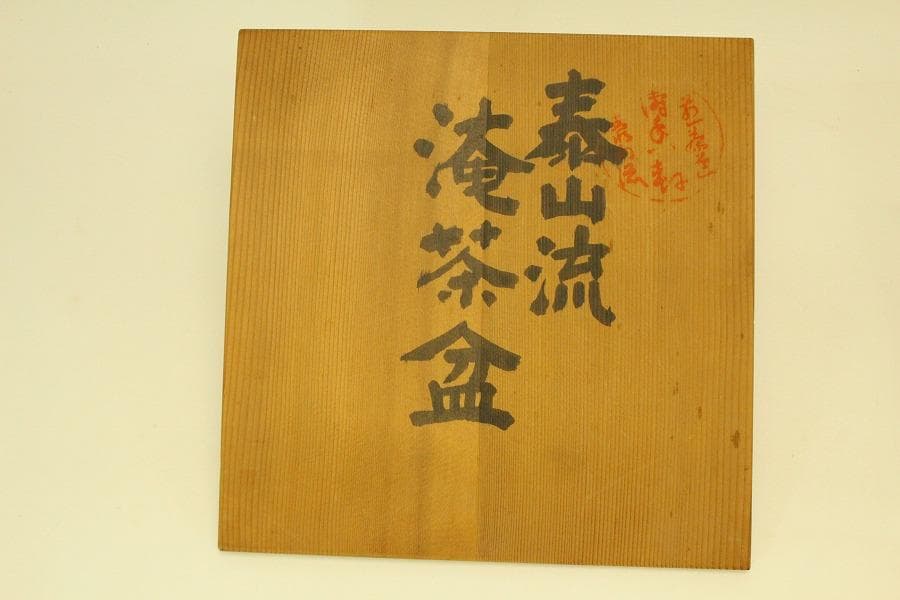 泰山流
淹茶盆